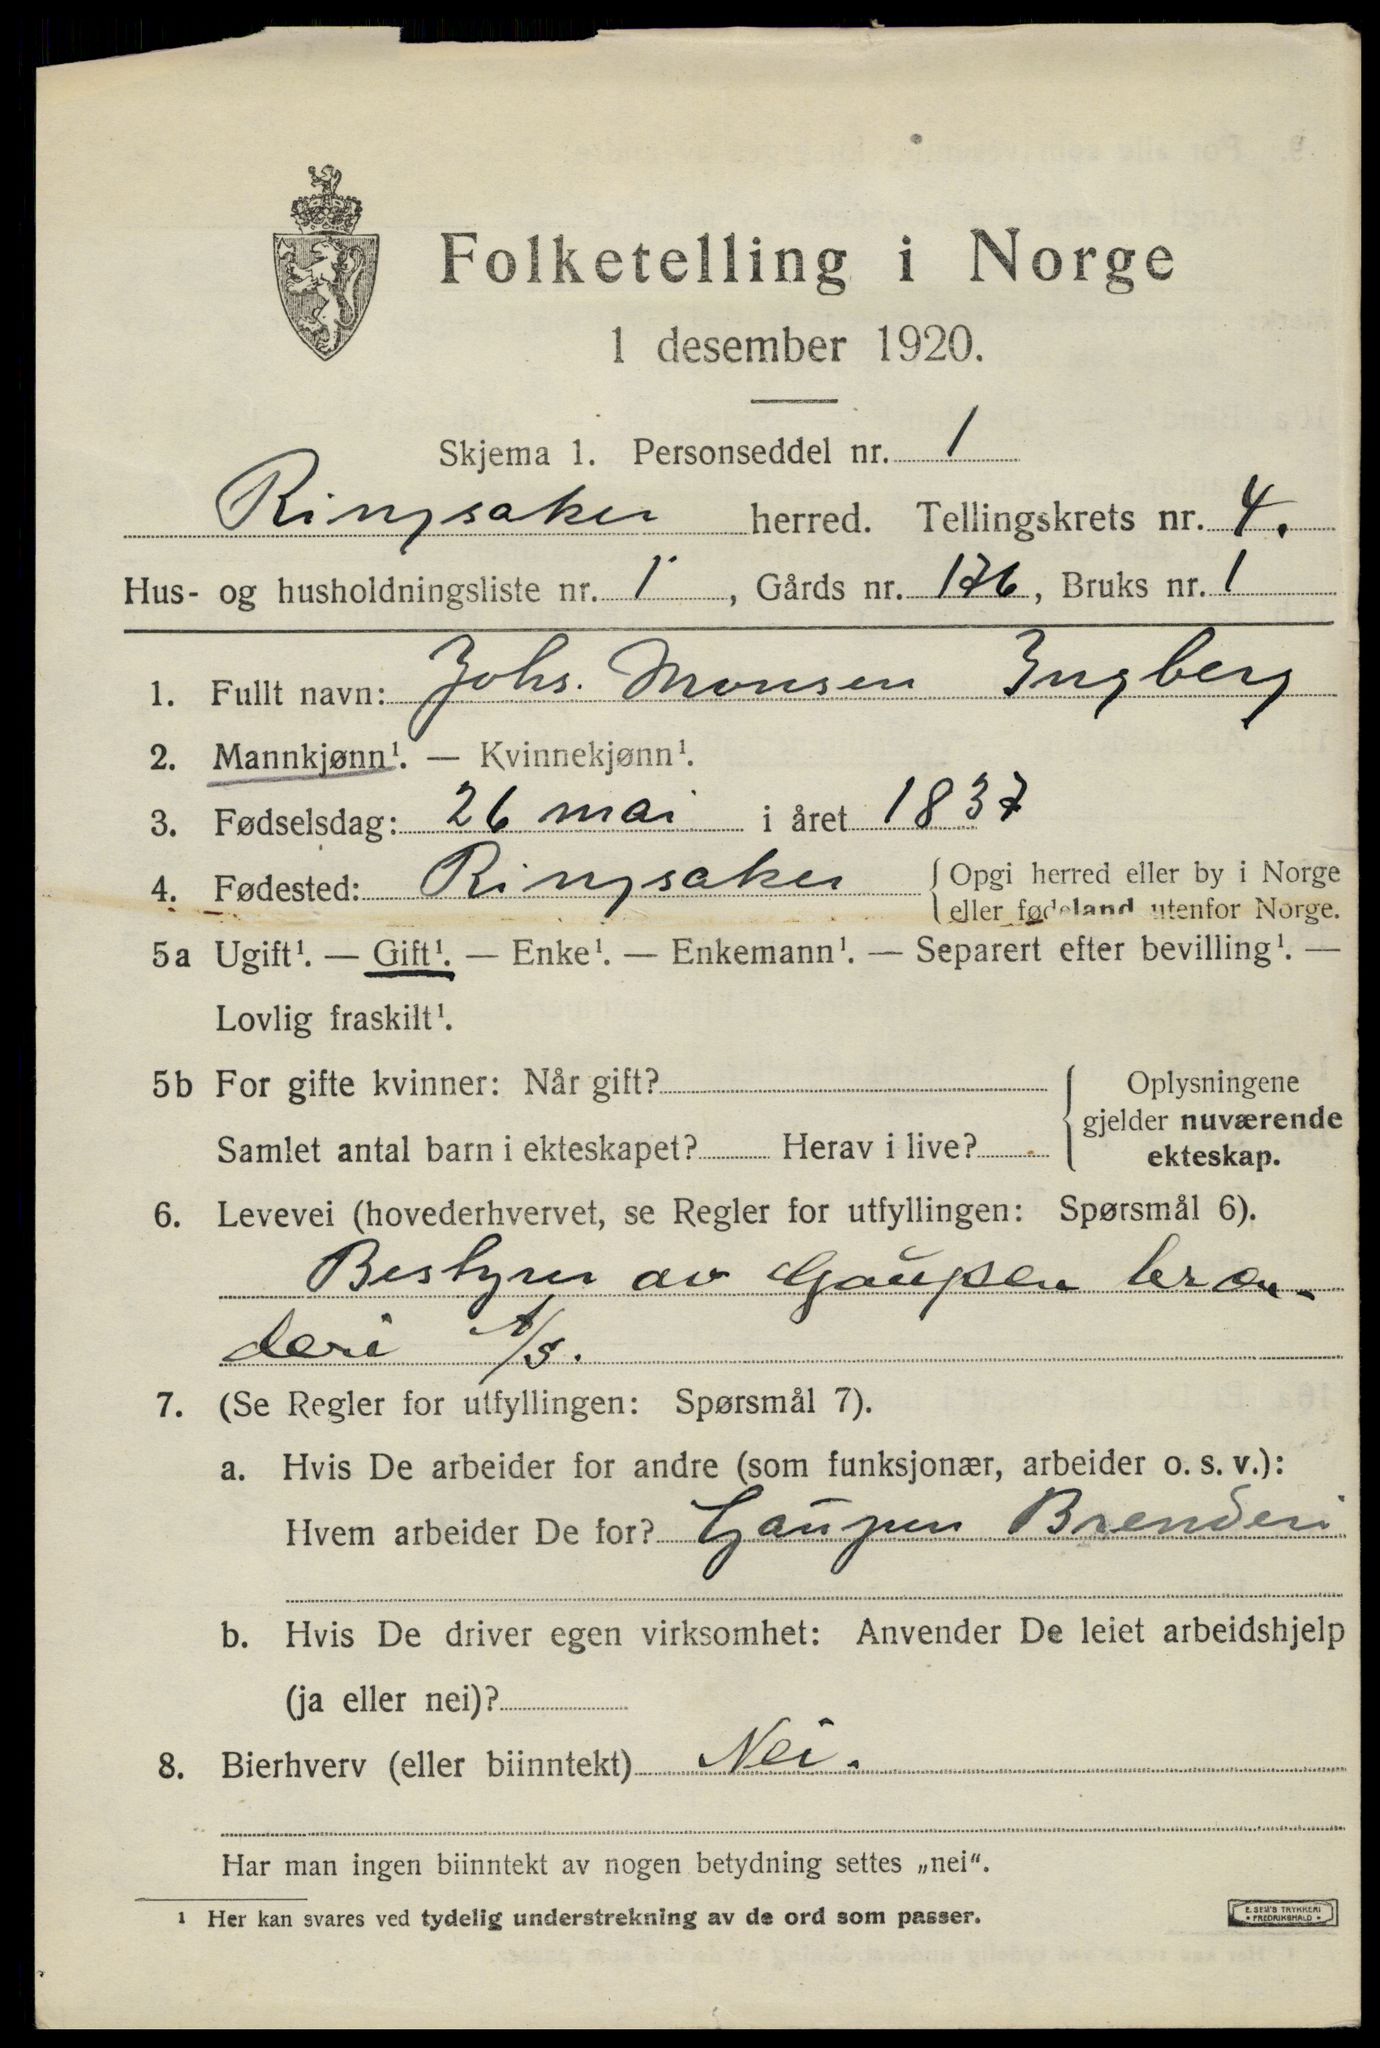 Folketelling i Norge
1 desember 1920.
Skjema 1. Personseddel nr. 1
Ringsaker herred. Tellingskrets nr. 4.
Hus- og husholdningsliste nr. 1, Gårds nr. 176, Bruks nr. 1
1. Fullt navn: Johs. Monsen Ingberg
2. Mannkjønn¹. — Kvinnekjønn¹.
3. Fødselsdag: 26 mai i året 1837
4. Fødested: Ringsaker { Opgi herred eller by i Norge
eller fødeland utenfor Norge.
5a Ugift¹. — Gift¹. — Enke¹. — Enkemann¹. — Separert efter bevilling¹. —
Lovlig fraskilt¹.
5b For gifte kvinner: Når gift?
Samlet antal barn i ekteskapet? Herav i live?
{ Oplysningene
gjelder nuværende
ekteskap.
6. Levevei (hovederhvervet, se Regler for utfyllingen: Spørsmål 6).
Bestyrer av Gaupen bræn-
deri A/S.
7. (Se Regler for utfyllingen: Spørsmål 7).
a. Hvis De arbeider for andre (som funksjonær, arbeider o. s. v.):
Hvem arbeider De for? Gaupen Brenderi
b. Hvis De driver egen virksomhet: Anvender De leiet arbeidshjelp
(ja eller nei)?
8. Bierhverv (eller biinntekt) Nei.
Har man ingen biinntekt av nogen betydning settes „nei“.
¹ Her kan svares ved tydelig understrekning av de ord som passer.
E. SEM'S TRYKKERI
• FREDRIKSHALD •